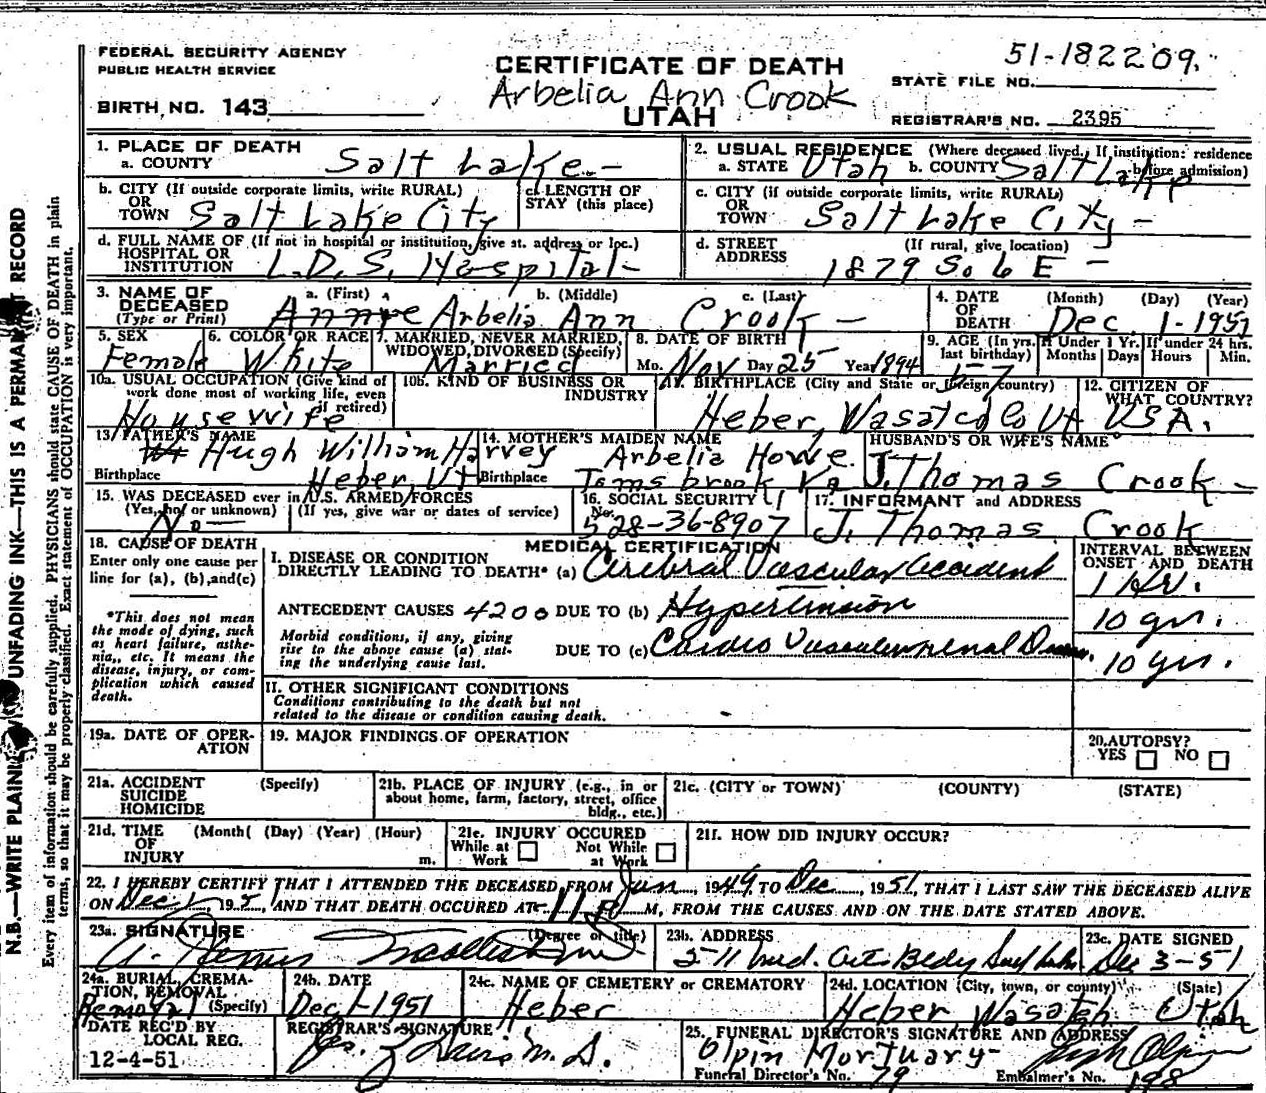 FEDERAL SECURITY AGENCY
PUBLIC HEALTH SERVICE
BIRTH NO. 143
CERTIFICATE OF DEATH
Arbelia Ann Crook
UTAH
51-182209.
STATE FILE NO.
REGISTRAR'S NO. 2395
1. PLACE OF DEATH
a. COUNTY Salt Lake-
2. USUAL RESIDENCE (Where deceased lived. If institution: residence before admission)
a. STATE Utah b. COUNTY Salt Lake
b. CITY (If outside corporate limits, write RURAL)
OR TOWN Salt Lake City
c. LENGTH OF STAY (this place)
c. CITY (if outside corporate limits, write RURAL)
OR TOWN Salt Lake City-
d. FULL NAME OF (If not in hospital or institution, give st. address or loc.)
HOSPITAL OR INSTITUTION L.D.S. Hospital-
d. STREET ADDRESS (If rural, give location)
1879 So 6 E -
3. NAME OF DECEASED (Type or Print)
a. (First) b. (Middle) c. (Last)
Annie Arbelia Ann Crook-
4. DATE OF DEATH (Month) (Day) (Year)
Dec. 1-1951
5. SEX
Female
6. COLOR OR RACE
White
7. MARRIED, NEVER MARRIED, WIDOWED, DIVORCED (Specify)
Married
8. DATE OF BIRTH
Mo. Nov Day 25 Year 1894
9. AGE (In yrs. last birthday) If Under 1 Yr. Months Days If under 24 hrs. Hours Min.
57
10a. USUAL OCCUPATION (Give kind of work done most of working life, even if retired)
Housewife
10b. KIND OF BUSINESS OR INDUSTRY
11. BIRTHPLACE (City and State or foreign country)
Heber, Wasatch Co Ut
12. CITIZEN OF WHAT COUNTRY?
USA.
13. FATHER'S NAME
Hugh William Harvey
Birthplace Heber, Ut
14. MOTHER'S MAIDEN NAME
Arbelia Howe
Birthplace Toms brook Va
HUSBAND'S OR WIFE'S NAME
J. Thomas Crook-
15. WAS DECEASED ever in U.S. ARMED FORCES
(Yes, no, or unknown) (If yes, give war or dates of service)
No-
16. SOCIAL SECURITY
No. 528-36-8907
17. INFORMANT and ADDRESS
J. Thomas Crook
18. CAUSE OF DEATH
Enter only one cause per line for (a), (b), and (c)
*This does not mean the mode of dying, such as heart failure, asthenia, etc. It means the disease, injury, or complication which caused death.
MEDICAL CERTIFICATION
INTERVAL BETWEEN ONSET AND DEATH
I. DISEASE OR CONDITION DIRECTLY LEADING TO DEATH* (a) Cerebral Vascular Accident 1 Hr.
ANTECEDENT CAUSES 4200 DUE TO (b) Hypertension 10 yrs.
Morbid conditions, if any, giving rise to the above cause (a) stating the underlying cause last.
DUE TO (c) Cardio Vascular renal Disease. 10 yrs.
II. OTHER SIGNIFICANT CONDITIONS
Conditions contributing to the death but not related to the disease or condition causing death.
19a. DATE OF OPERATION
19. MAJOR FINDINGS OF OPERATION
20. AUTOPSY?
YES NO
21a. ACCIDENT SUICIDE HOMICIDE (Specify)
21b. PLACE OF INJURY (e.g., in or about home, farm, factory, street, office bldg., etc.)
21c. (CITY or TOWN) (COUNTY) (STATE)
21d. TIME OF INJURY (Month) (Day) (Year) (Hour) m.
21e. INJURY OCCURED
While at Work Not While at Work
21f. HOW DID INJURY OCCUR?
22. I HEREBY CERTIFY THAT I ATTENDED THE DECEASED FROM Jan, 1949 TO Dec, 1951, THAT I LAST SAW THE DECEASED ALIVE
ON Dec 1 195, AND THAT DEATH OCCURED AT M, FROM THE CAUSES AND ON THE DATE STATED ABOVE.
23a. SIGNATURE (Degree or title)
23b. ADDRESS
23c. DATE SIGNED
Dec 3-51
24a. BURIAL, CREMATION, REMOVAL (Specify)
Removal
24b. DATE
Dec 1-1951
24c. NAME OF CEMETERY or CREMATORY
Heber
24d. LOCATION (City, town, or county) (State)
Heber Wasatch Utah
DATE REC'D BY LOCAL REG.
12-4-51
REGISTRAR'S SIGNATURE
25. FUNERAL DIRECTOR'S SIGNATURE AND ADDRESS
Olpin Mortuary-
Funeral Director's No. 79 Embalmer's No. 198
N.B.—WRITE PLAINLY UNFADING INK—THIS IS A PERMANENT RECORD
Every item of information should be carefully supplied. PHYSICIANS should state CAUSE OF DEATH in plain
terms, so that it may be properly classified. Exact statement of OCCUPATION is very important.